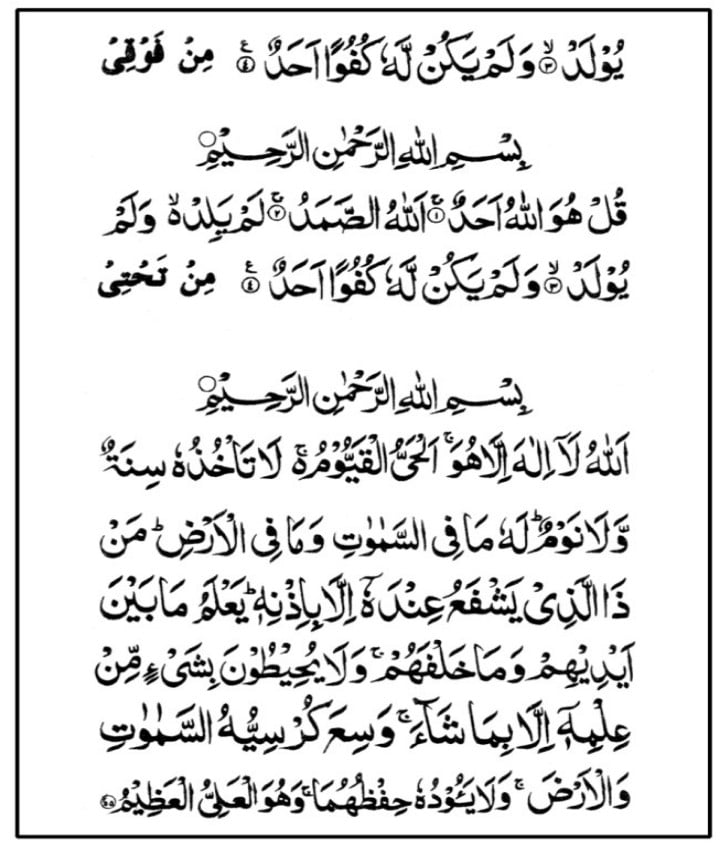 يُوْلَدْ ۙ﴿۳﴾ وَلَمْ يَكُنْ لَّهٗ كُفُوًا اَحَدٌ ﴿۴﴾ مِنْ فَوْقِىْ
بِسْمِ اللهِ الرَّحْمٰنِ الرَّحِيْمِ
قُلْ هُوَ اللهُ اَحَدٌ ۚ﴿۱﴾ اَللهُ الصَّمَدُ ۚ﴿۲﴾ لَمْ يَلِدْ ۙ وَلَمْ
يُوْلَدْ ۙ﴿۳﴾ وَلَمْ يَكُنْ لَّهٗ كُفُوًا اَحَدٌ ﴿۴﴾ مِنْ تَحْتِىْ
بِسْمِ اللهِ الرَّحْمٰنِ الرَّحِيْمِ
اَللهُ لَآ اِلٰهَ اِلَّا هُوَ ۚ اَلْحَىُّ الْقَيُّوْمُ ۚ لَا تَاْخُذُهٗ سِنَةٌ
وَّلَا نَوْمٌ ؕ لَهٗ مَا فِى السَّمٰوٰتِ وَمَا فِى الْاَرْضِ ؕ مَنْ
ذَا الَّذِىْ يَشْفَعُ عِنْدَهٗٓ اِلَّا بِاِذْنِهٖ ؕ يَعْلَمُ مَا بَيْنَ
اَيْدِيْهِمْ وَمَا خَلْفَهُمْ ۚ وَلَا يُحِيْطُوْنَ بِشَىْءٍ مِّنْ
عِلْمِهٖٓ اِلَّا بِمَا شَآءَ ۚ وَسِعَ كُرْسِيُّهُ السَّمٰوٰتِ
وَالْاَرْضَ ۚ وَلَا يَـُٔوْدُهٗ حِفْظُهُمَا ۚ وَهُوَ الْعَلِىُّ الْعَظِيْمُ